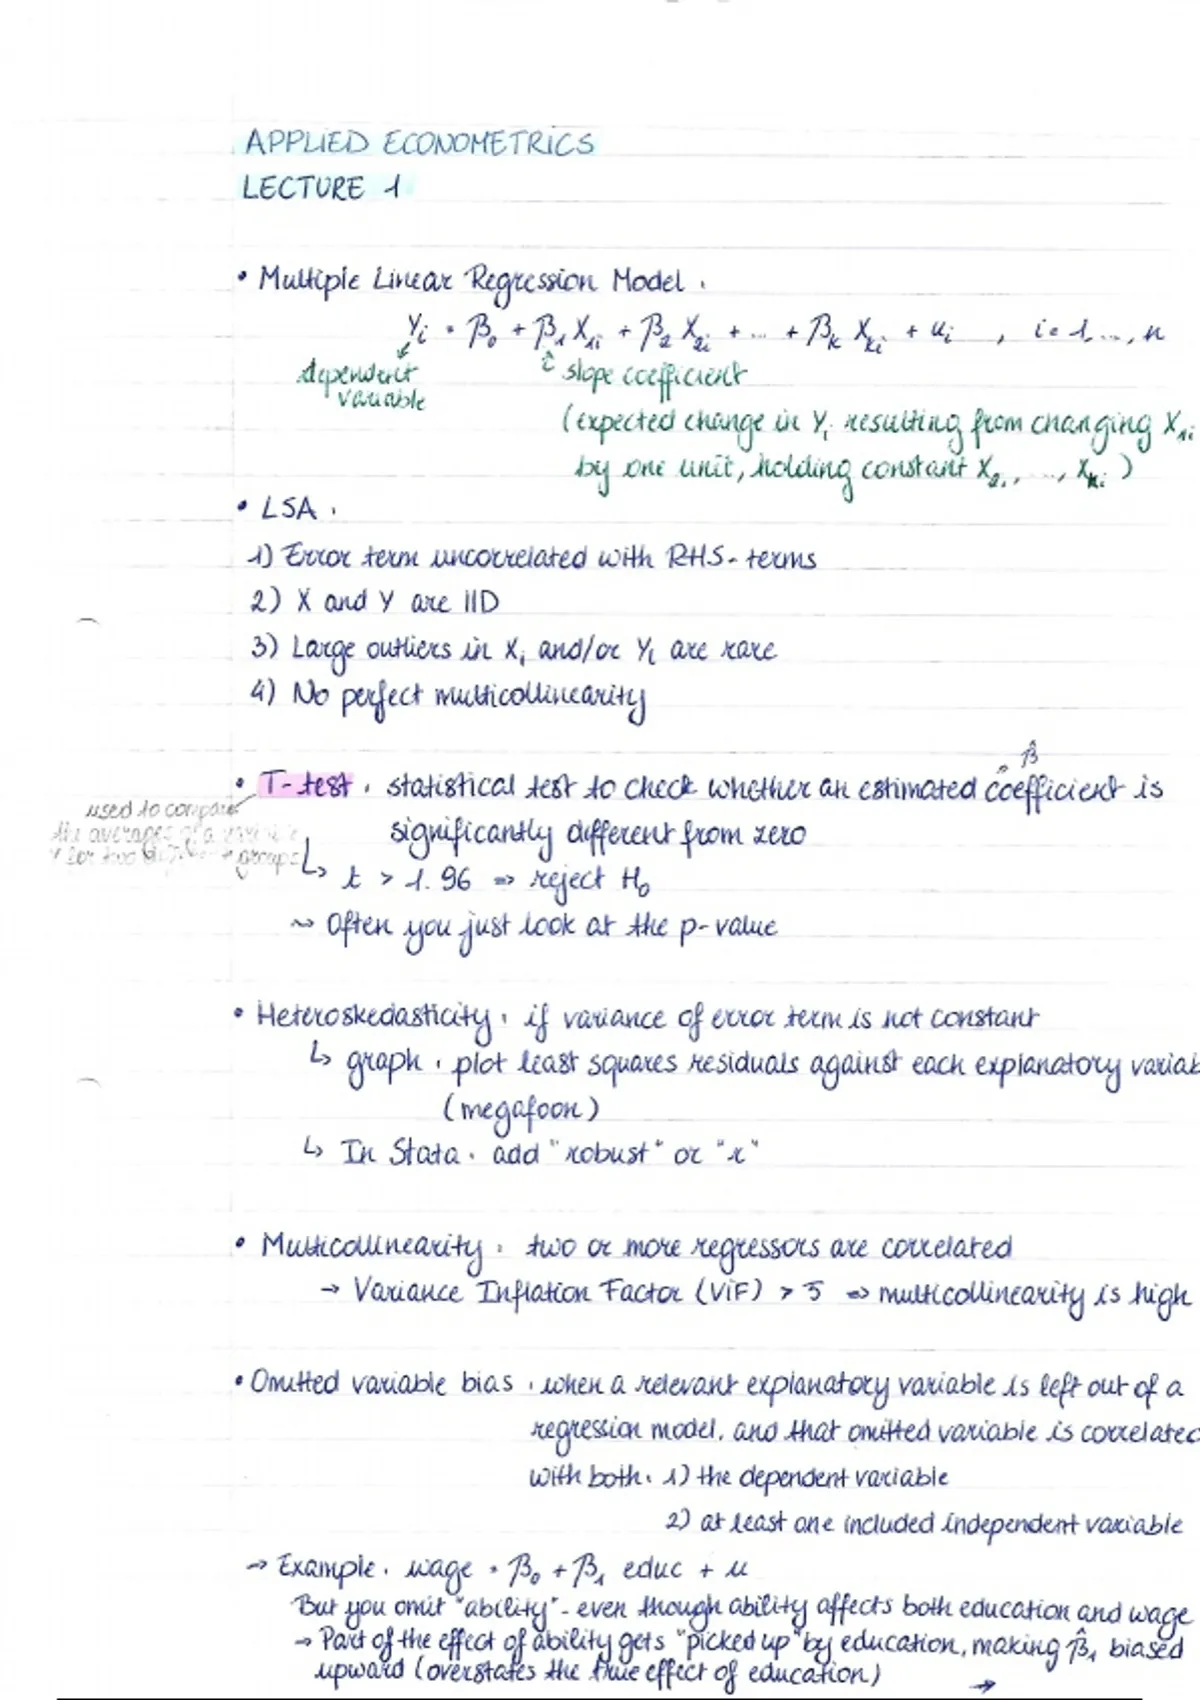 APPLIED ECONOMETRICS
LECTURE 1
• Multiple Linear Regression Model:
Yi = β0 + β1 X1i + β2 X2i + ... + βk Xki + ui , i = 1, ..., n
dependent
variable
slope coefficient
(expected change in Yi resulting from changing X1i
by one unit, holding constant X2i, ..., Xki)
• LSA:
1) Error term uncorrelated with RHS-terms
2) X and Y are IID
3) Large outliers in Xi and/or Yi are rare
4) No perfect multicollinearity
β̂
• T-test: statistical test to check whether an estimated coefficient is
significantly different from zero
used to compare
the averages of a
for two groups
↳ t > 1.96 => reject H0
~> Often you just look at the p-value
• Heteroskedasticity: if variance of error term is not constant
↳ graph: plot least squares residuals against each explanatory variab
(megafoon)
↳ In Stata: add "robust" or "r"
• Multicollinearity: two or more regressors are correlated
→ Variance Inflation Factor (ViF) > 5 => multicollinearity is high
• Omitted variable bias: when a relevant explanatory variable is left out of a
regression model, and that omitted variable is correlated
with both: 1) the dependent variable
2) at least one included independent variable
→ Example: wage = β0 + β1 educ + u
But you omit "ability" - even though ability affects both education and wage
→ Part of the effect of ability gets "picked up" by education, making β̂1 biased
upward (overstates the true effect of education)
→